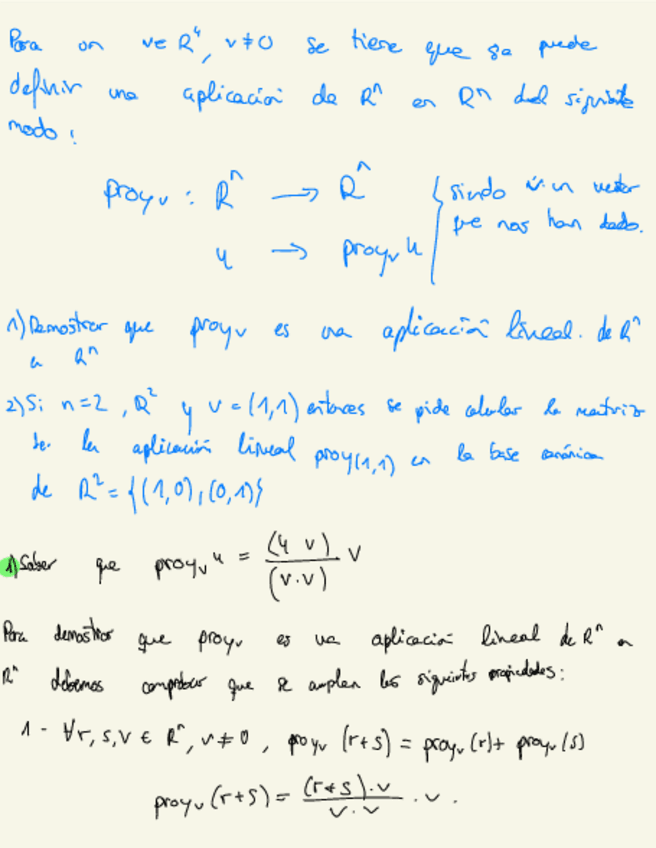 Para un v∈R⁴, v≠0 se tiene que se puede
definir una aplicación de Rⁿ en Rⁿ del siguiente
modo:
proyᵥ : Rⁿ → Rⁿ { siendo v un vector
u → proyᵥ u que nos han dado.
1) Demostrar que proyᵥ es una aplicación lineal. de Rⁿ
a Rⁿ
2) Si n=2, R² y v=(1,1) entonces se pide calcular la matriz
de la aplicación lineal proy(1,1) en la base canónica
de R² = {(1,0),(0,1)}
1) Saber que proyᵥ u = (u v)/(v·v) v
Para demostrar que proyᵥ es una aplicación lineal de Rⁿ a
Rⁿ debemos comprobar que se cumplen las siguientes propiedades:
1 - ∀r, s, v ∈ Rⁿ, v≠0, proyᵥ (r+s) = proyᵥ (r) + proyᵥ (s)
proyᵥ (r+s) = (r+s)·v / v·v · v.